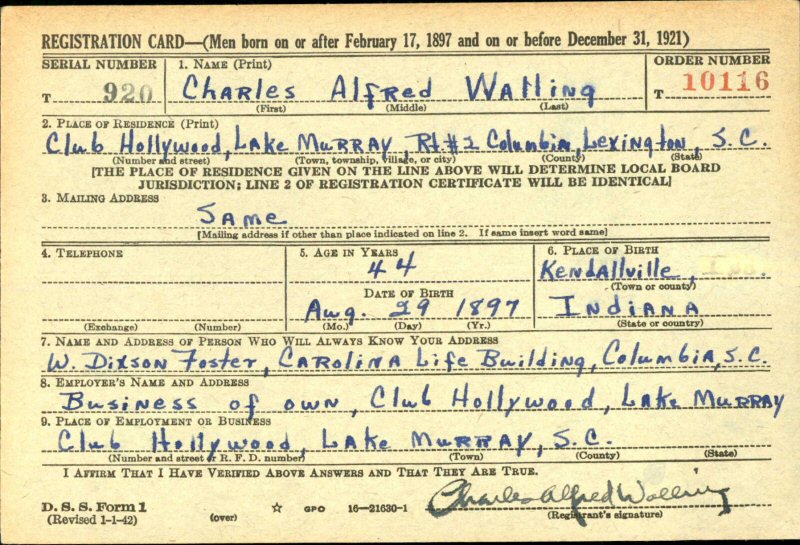 REGISTRATION CARD—(Men born on or after February 17, 1897 and on or before December 31, 1921)
SERIAL NUMBER 1. NAME (Print) ORDER NUMBER
T 920 Charles Alfred Walling T 10116
(First) (Middle) (Last)
2. PLACE OF RESIDENCE (Print)
Club Hollywood, Lake Murray, Rt #2 Columbia, Lexington, S.C.
(Number and street) (Town, township, village, or city) (County) (State)
[THE PLACE OF RESIDENCE GIVEN ON THE LINE ABOVE WILL DETERMINE LOCAL BOARD
JURISDICTION; LINE 2 OF REGISTRATION CERTIFICATE WILL BE IDENTICAL]
3. MAILING ADDRESS
Same
[Mailing address if other than place indicated on line 2. If same insert word same]
4. TELEPHONE 5. AGE IN YEARS 6. PLACE OF BIRTH
44 Kendallville,
DATE OF BIRTH (Town or county)
Aug. 29 1897 Indiana
(Exchange) (Number) (Mo.) (Day) (Yr.) (State or country)
7. NAME AND ADDRESS OF PERSON WHO WILL ALWAYS KNOW YOUR ADDRESS
W. Dixson Foster, Carolina Life Building, Columbia, S.C.
8. EMPLOYER'S NAME AND ADDRESS
Business of own, Club Hollywood, Lake Murray
9. PLACE OF EMPLOYMENT OR BUSINESS
Club Hollywood, Lake Murray, S.C.
(Number and street or R. F. D. number) (Town) (County) (State)
I AFFIRM THAT I HAVE VERIFIED ABOVE ANSWERS AND THAT THEY ARE TRUE.
Charles Alfred Walling
D. S. S. Form 1
(Revised 1-1-42) (over) ☆ GPO 16—21630-1 (Registrant's signature)